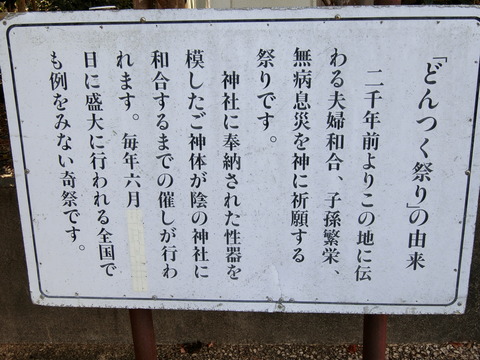 「どんつく祭り」の由来
二千年前よりこの地に伝
わる夫婦和合、子孫繁栄、
無病息災を神に祈願する
祭りです。
神社に奉納された性器を
模したご神体が陰の神社に
和合するまでの催しが行わ
れます。毎年六月
日に盛大に行われる全国で
も例をみない奇祭です。